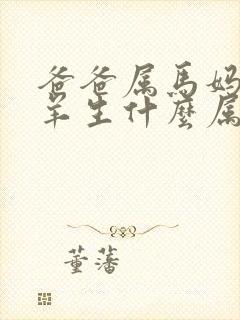 爸爸属馬妈
羊生什麼属
董藩